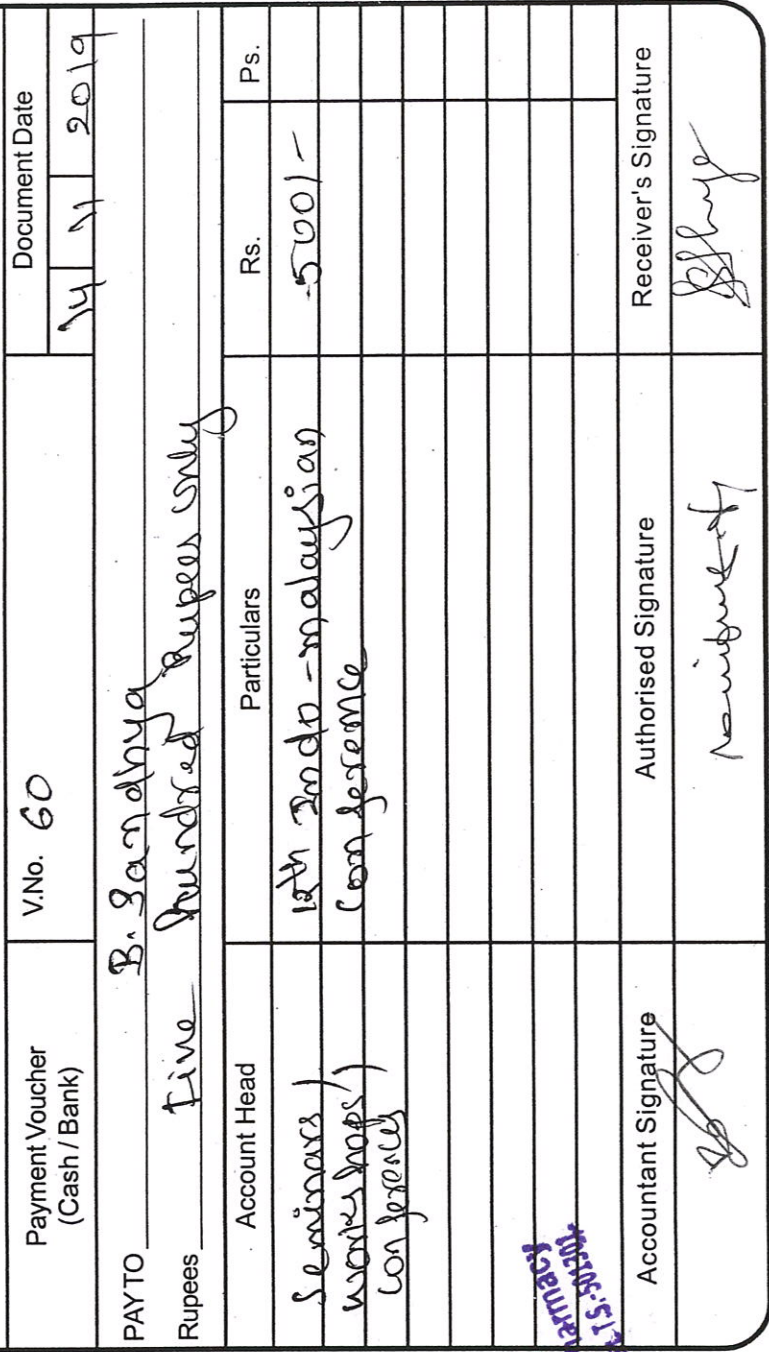 Payment Voucher
(Cash / Bank)
V.No. 60
Document Date
14 11 2019
PAY TO B. Sandhya
Rupees Five hundred Rupees only
Account Head
Particulars
Rs.
Ps.
Seminars/
workshops/
conferences
12th Indo-malaysian
conference
500/-
armacy
T.S.-501301.
Accountant Signature
Authorised Signature
Receiver's Signature